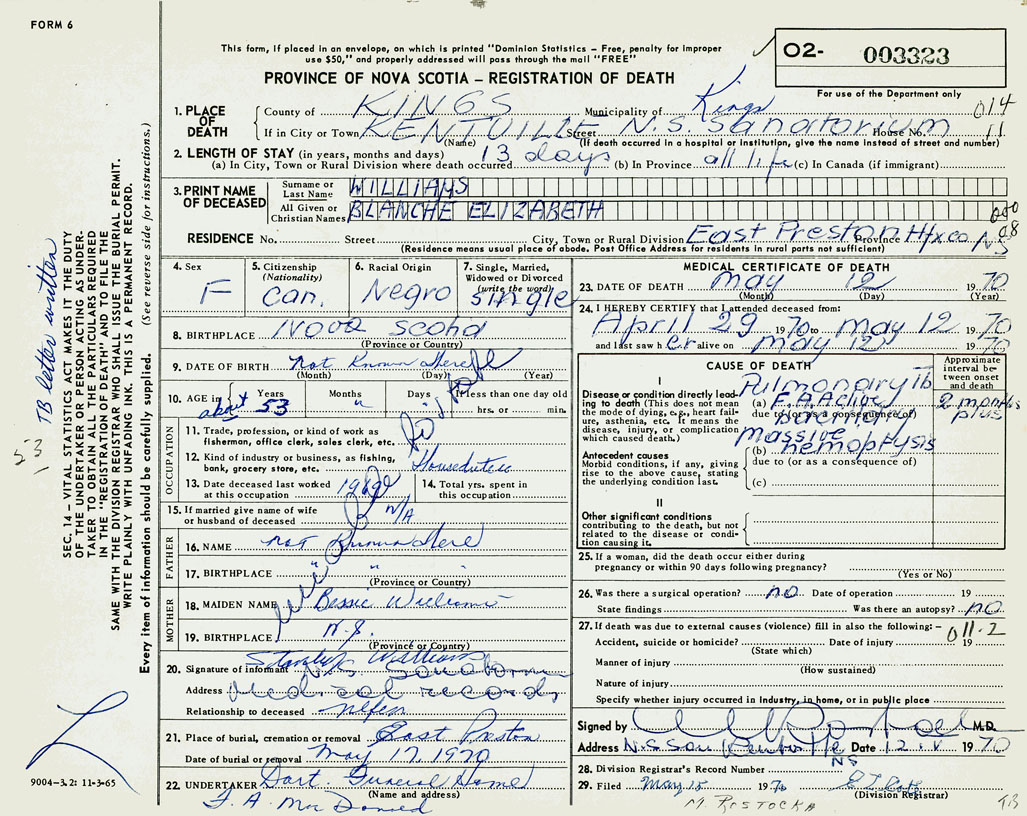 FORM 6
This form, if placed in an envelope, on which is printed "Dominion Statistics – Free, penalty for improper
use $50," and properly addressed will pass through the mail "FREE"
PROVINCE OF NOVA SCOTIA – REGISTRATION OF DEATH
02- 003323
For use of the Department only
014
11
1. PLACE OF DEATH
County of KINGS Municipality of Kings
If in City or Town KENTVILLE Street N.S. Sanatorium House No.
(Name) (If death occurred in a hospital or institution, give the name instead of street and number)
2. LENGTH OF STAY (in years, months and days)
(a) In City, Town or Rural Division where death occurred 13 days (b) In Province all life (c) In Canada (if immigrant)
3. PRINT NAME OF DECEASED
Surname or Last Name WILLIAMS
All Given or Christian Names BLANCHE ELIZABETH
08
RESIDENCE No. Street City, Town or Rural Division East Preston Province Hfx co. N.S
(Residence means usual place of abode. Post Office Address for residents in rural parts not sufficient)
4. Sex F
5. Citizenship (Nationality) Can.
6. Racial Origin Negro
7. Single, Married, Widowed or Divorced (write the word) Single
8. BIRTHPLACE Nova Scotia
(Province or Country)
9. DATE OF BIRTH not Known Here
(Month) (Day) (Year)
10. AGE in about Years 53 Months " Days " If less than one day old
hrs. or min.
OCCUPATION
11. Trade, profession, or kind of work as
fisherman, office clerk, sales clerk, etc.
12. Kind of industry or business, as fishing,
bank, grocery store, etc. Houseduties
13. Date deceased last worked
at this occupation 1969
14. Total yrs. spent in
this occupation
15. If married give name of wife
or husband of deceased N/A
FATHER
16. NAME not Known Here
17. BIRTHPLACE " " "
(Province or Country)
MOTHER
18. MAIDEN NAME Bessie Williams
19. BIRTHPLACE N.S.
(Province or Country)
20. Signature of informant Stanley Williams
N.S. Sanatorium
Address Medical records
Relationship to deceased nefew
21. Place of burial, cremation or removal East Preston
Date of burial or removal May 17, 1970
22. UNDERTAKER Dart. Funeral Home
(Name and address)
F. A. MacDonald
MEDICAL CERTIFICATE OF DEATH
23. DATE OF DEATH May 12 1970
(Month) (Day) (Year)
24. I HEREBY CERTIFY that I attended deceased from:
April 29 1970 to May 12 1970
and last saw her alive on May 12 1970
CAUSE OF DEATH
Approximate interval between onset and death
I
Disease or condition directly leading to death (This does not mean the mode of dying, e.g., heart failure, asthenia, etc. It means the disease, injury, or complication which caused death.)
Pulmonary Tb
(a) F.A. Active
2 months plus
due to (or as a consequence of)
massive
(b) hemoptysis
due to (or as a consequence of)
(c)
Antecedent causes
Morbid conditions, if any, giving rise to the above cause, stating the underlying condition last.
II
Other significant conditions
contributing to the death, but not related to the disease or condition causing it.
25. If a woman, did the death occur either during
pregnancy or within 90 days following pregnancy?
(Yes or No)
26. Was there a surgical operation? no Date of operation 19
State findings Was there an autopsy? no
27. If death was due to external causes (violence) fill in also the following:– 011.2
Accident, suicide or homicide? Date of injury 19
(State which)
Manner of injury
(How sustained)
Nature of injury
Specify whether injury occurred in industry, in home, or in public place
Signed by M.D.
Address N.S. San Kentville NS Date 12.V 1970
28. Division Registrar's Record Number
29. Filed May 15 1970
(Division Registrar)
M. ROSTOCKA
TB
SEC. 14 – VITAL STATISTICS ACT MAKES IT THE DUTY
OF THE UNDERTAKER OR PERSON ACTING AS UNDER-
TAKER TO OBTAIN ALL THE PARTICULARS REQUIRED
IN THE "REGISTRATION OF DEATH" AND TO FILE THE
SAME WITH THE DIVISION REGISTRAR WHO SHALL ISSUE THE BURIAL PERMIT.
WRITE PLAINLY WITH UNFADING INK. THIS IS A PERMANENT RECORD.
Every item of information should be carefully supplied. (See reverse side for instructions.)
TB letter written
53
9004–3.2: 11-3-65